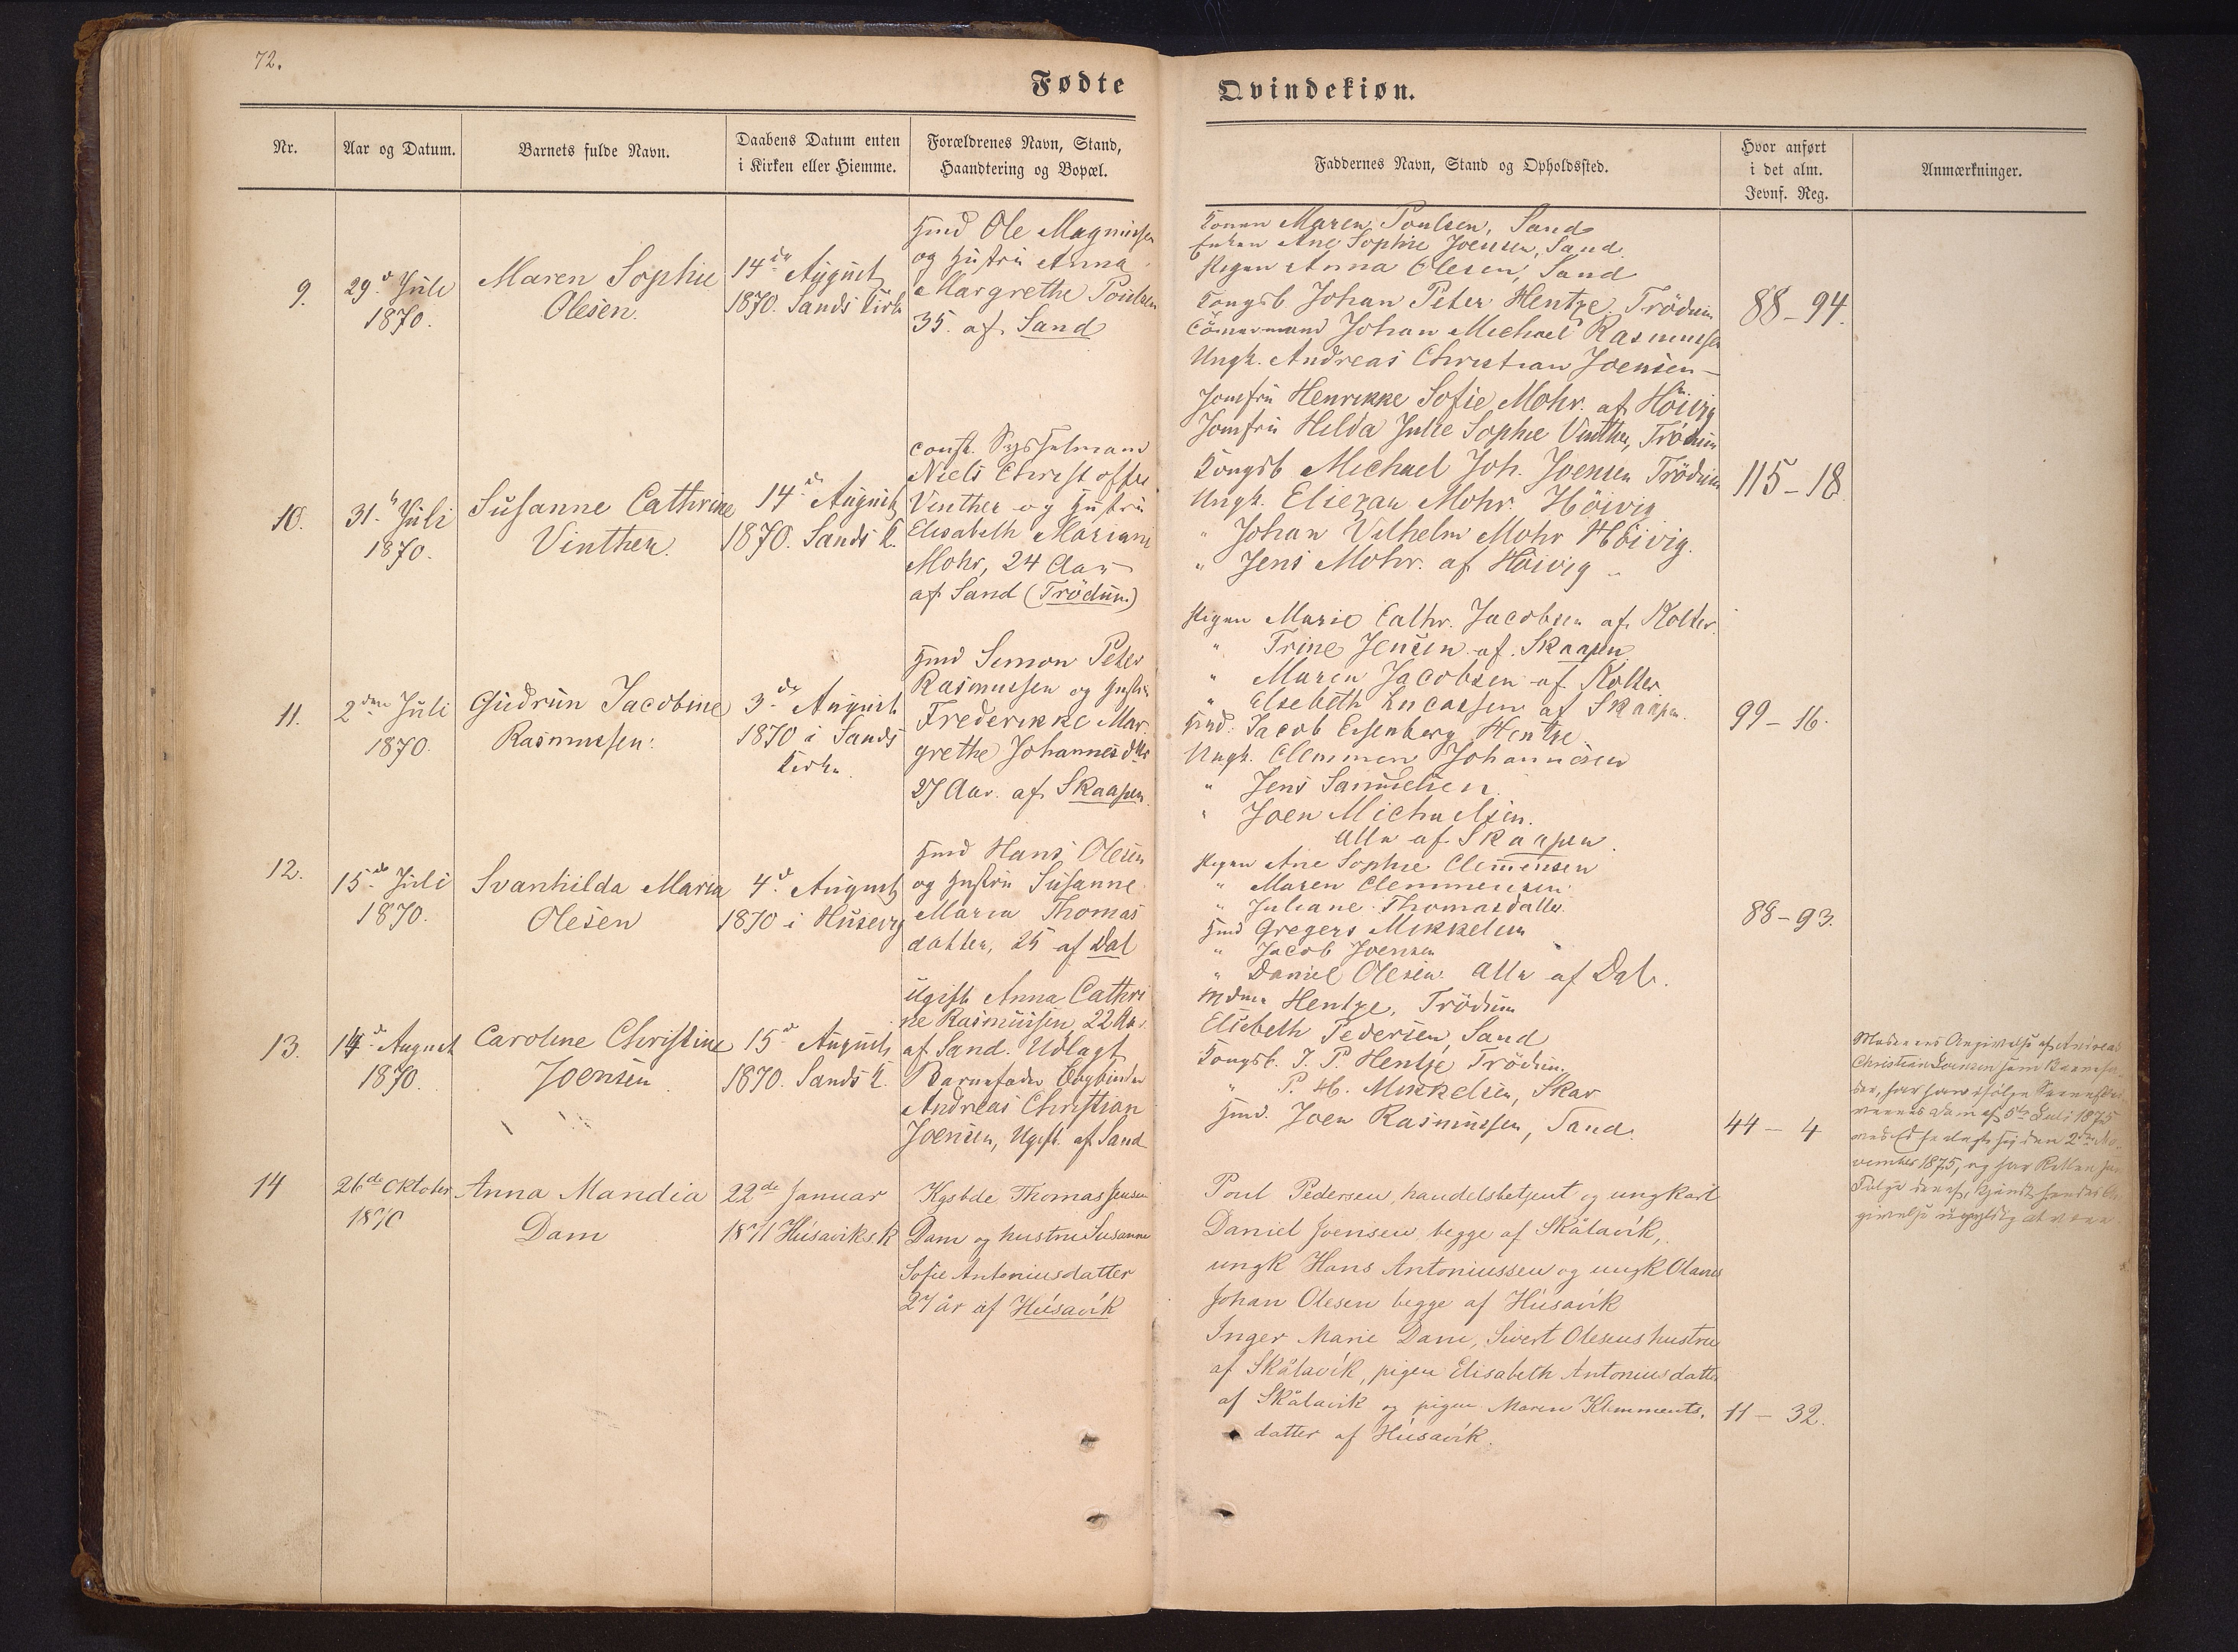 72.
Fødte
Qvindekiøn.
Nr.
Aar og Datum.
Barnets fulde Navn.
Daabens Datum enten
i Kirken eller Hiemme.
Forældrenes Navn, Stand,
Haandtering og Bopæl.
Faddernes Navn, Stand og Opholdssted.
Hvor anført
i det alm.
Jevnf. Reg.
Anmærkninger.
9.
29d Juli
1870.
Maren Sophie
Olesen.
14de August
1870. Sands Kirke
Hmd Ole Magnussen
og Hustru Anna
Margrethe Poulsen
35. af Sand
Konen Maren Poulsen, Sand
Enken Ane Sophie Joensen, Sand.
Pigen Anna Olesen, Sand
Kongsb. Johan Peter Hentze, Trödum
Tömmermand Johan Michael Rasmussen
Ungk. Andreas Christian Joensen –
88–94.
10.
31. Juli
1870.
Susanne Cathrine
Vinther.
14de August
1870. Sands K.
const. Sysselmand
Niels Christoffer
Vinther og Hustru
Elisabeth Mariane
Mohr, 24 Aar
af Sand (Trödum)
Jomfru Henrikke Sofie Mohr. af Höivig
Jomfru Hilda Julie Sophie Vinther, Trödum
Kongsb Michael Joh. Joensen Trödum
Ungk. Eliezar Mohr. Höivig
" Johan Vilhelm Mohr Höivig.
" Jens Mohr. af Höivig
115–18
11.
2den Juli
1870.
Gudrun Jacobine
Rasmussen.
3de August
1870 i Sands
Kirke.
Hmd Simon Peter
Rasmussen og Hustru
Frederikke Mar-
grethe Johannesdtr
27 Aar. af Skaapen.
Pigen Marie Cathr. Jacobsen af Kolter.
" Trine Jensen af Skaapen
" Maren Jacobsen af Kolter.
" Elsebeth Lucassen af Skaapen.
Hmd. Jacob Eisenberg Hentze
Ungk. Clemmen Johannesen
" Jens Samuelsen.
" Joen Michaelsen.
Alle af Skaapen.
99–16.
12.
15de Juli
1870.
Svanhilda Maria
Olesen
4d August
1870 i Husevig
Hmd Hans Olesen
og Hustru Susanne
Maria Thomas
datter, 25 af Dal
Pigen Ane Sophie Clemensen
" Maren Clemmensen
" Juliane Thomasdatter
Hmd Gregers Mikkelsen
" Jacob Joensen
" Daniel Olesen. Alle af Dal.
88–93.
13.
14d August
1870.
Caroline Christine
Joensen
15d August
1870. Sands K.
Ugift Anna Cathri
ne Rasmussen, 22 Aar
af Sand. Udlagt
Barnefader Bogbinder
Andreas Christian
Joensen, Ugift. af Sand
Hentze, Trödum
Elsebeth Pedersen, Sand
Kongsb. J. P. Hentze Trödum.
" P. H. Mikkelsen, Skar
Hmd. Joen Rasmussen, Sand.
44 – 4
Moderens Angivelse af Andreas
Christian Joensen som Barnefa-
der, har han ifölge
af 5te Juli 1875
med Ed fralagt sig den 2den No-
vember 1875, og har Retten
Fölge deraf, kjendt hendes An-
givelse ugyldig at være.
14
26de Oktober
1870
Anna Mandia
Dam
22de Januar
1871 Húsavíks.K
Kgsbde Thomas Jensen
Dam og hustru Susanne
Sofie Antoniusdatter
27 år af Húsavík
Poul Pedersen, handelsbetjent og ungkarl
Daniel Joensen, begge af Skålavík,
ungk Hans Antoniussen og ungk Olaves
Johan Olesen begge af Húsavík
Inger Marie Dam, Sivert Olesens hustru
af Skålavík, pigen Elisabeth Antoniusdatter
af Skålavík og pigen Maren Klemments-
datter af Húsavík.
11 – 32.